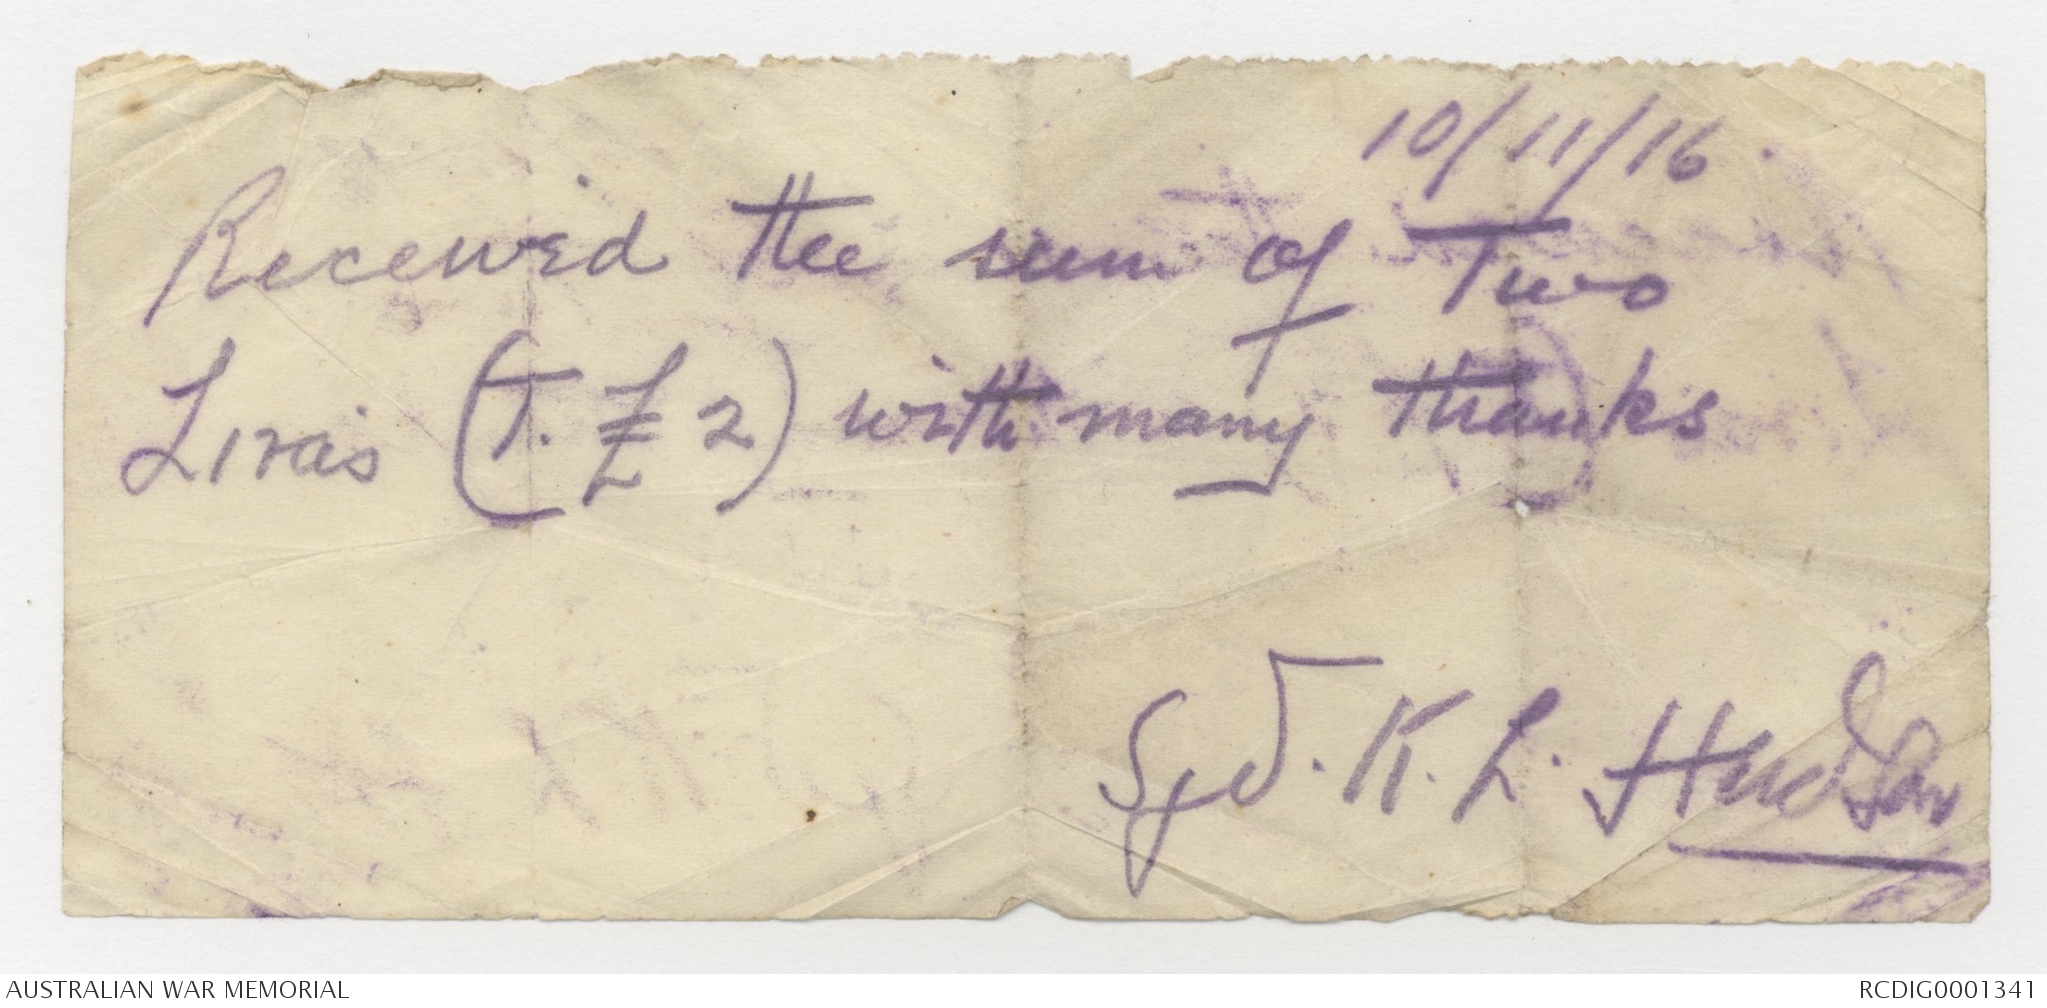 10/11/16
Received the sum of Two
Liras (T. £ 2) with many thanks
Sgd. K. L. Hudson
AUSTRALIAN WAR MEMORIAL
RCDIG0001341